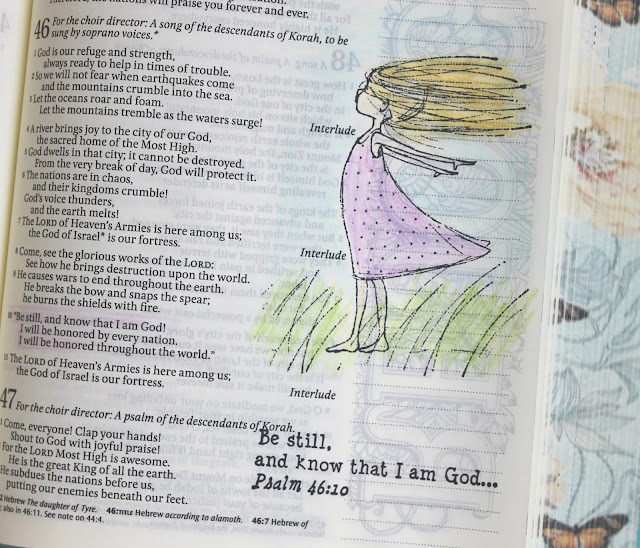 the nations will praise you forever and ever.
46 For the choir director: A song of the descendants of Korah, to be
sung by soprano voices.*
1 God is our refuge and strength,
always ready to help in times of trouble.
2 So we will not fear when earthquakes come
and the mountains crumble into the sea.
3 Let the oceans roar and foam.
Let the mountains tremble as the waters surge!
Interlude
4 A river brings joy to the city of our God,
the sacred home of the Most High.
5 God dwells in that city; it cannot be destroyed.
From the very break of day, God will protect it.
6 The nations are in chaos,
and their kingdoms crumble!
God's voice thunders,
and the earth melts!
7 The LORD of Heaven's Armies is here among us;
the God of Israel* is our fortress.
Interlude
8 Come, see the glorious works of the LORD:
See how he brings destruction upon the world.
9 He causes wars to end throughout the earth.
He breaks the bow and snaps the spear;
he burns the shields with fire.
10 "Be still, and know that I am God!
I will be honored by every nation.
I will be honored throughout the world."
11 The LORD of Heaven's Armies is here among us;
the God of Israel is our fortress.
Interlude
47 For the choir director: A psalm of the descendants of Korah.
1 Come, everyone! Clap your hands!
Shout to God with joyful praise!
2 For the LORD Most High is awesome.
He is the great King of all the earth.
3 He subdues the nations before us,
putting our enemies beneath our feet.
Be still,
and know that I am God...
Psalm 46:10
Hebrew The daughter of Tyre. 46:TITLE Hebrew according to alamoth. 46:7 Hebrew of
also in 46:11. See note on 44:4.